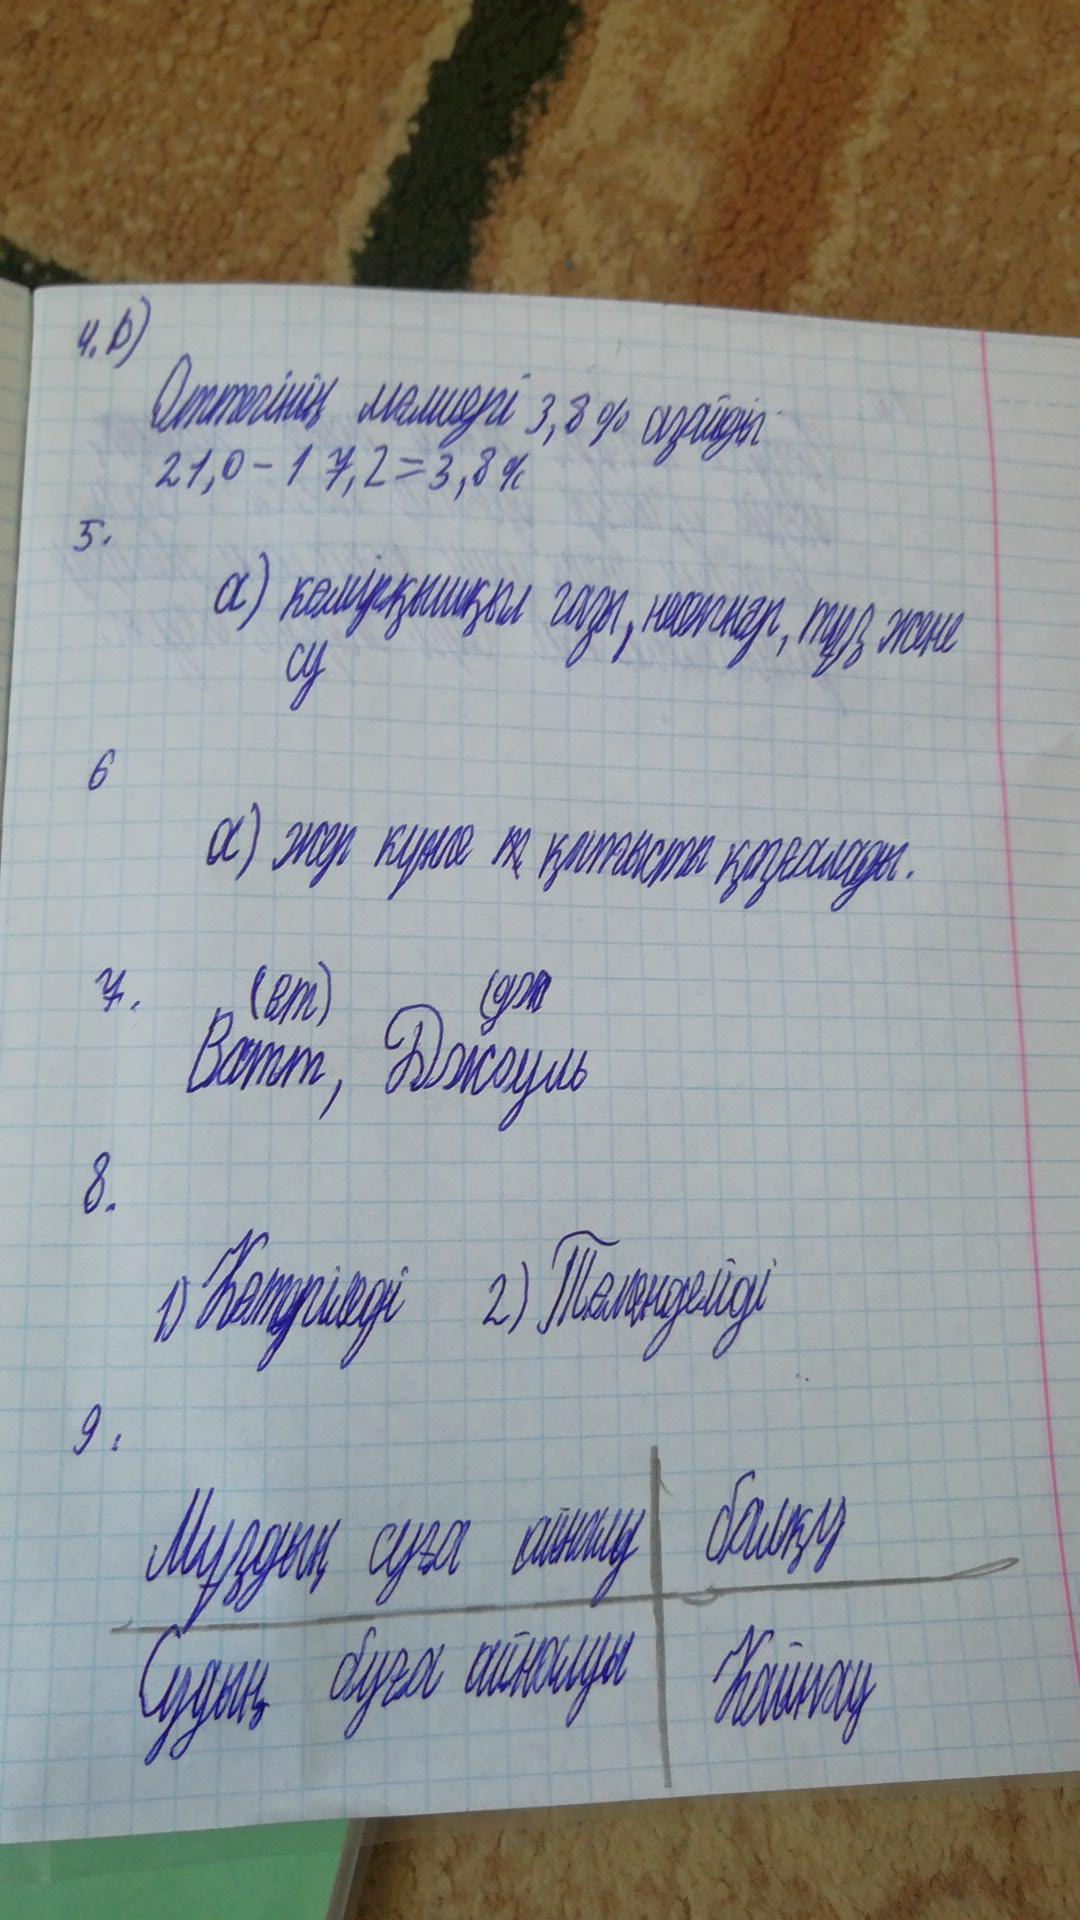 4. b)
Оттегінің мөлшері 3,8 % азайды
21,0 - 17,2 = 3,8 %
5.
а) көмірқышқыл газы, несепнәр, тұз және
су
6
а) жер күнге қатысты қозғалады.
7. (вт) (дж
Ватт, Джоуль
8.
1) Көтеріледі 2) Төмендейді
9.
Мұздың суға айналу балқу
Судың буға айналуы Қайнау